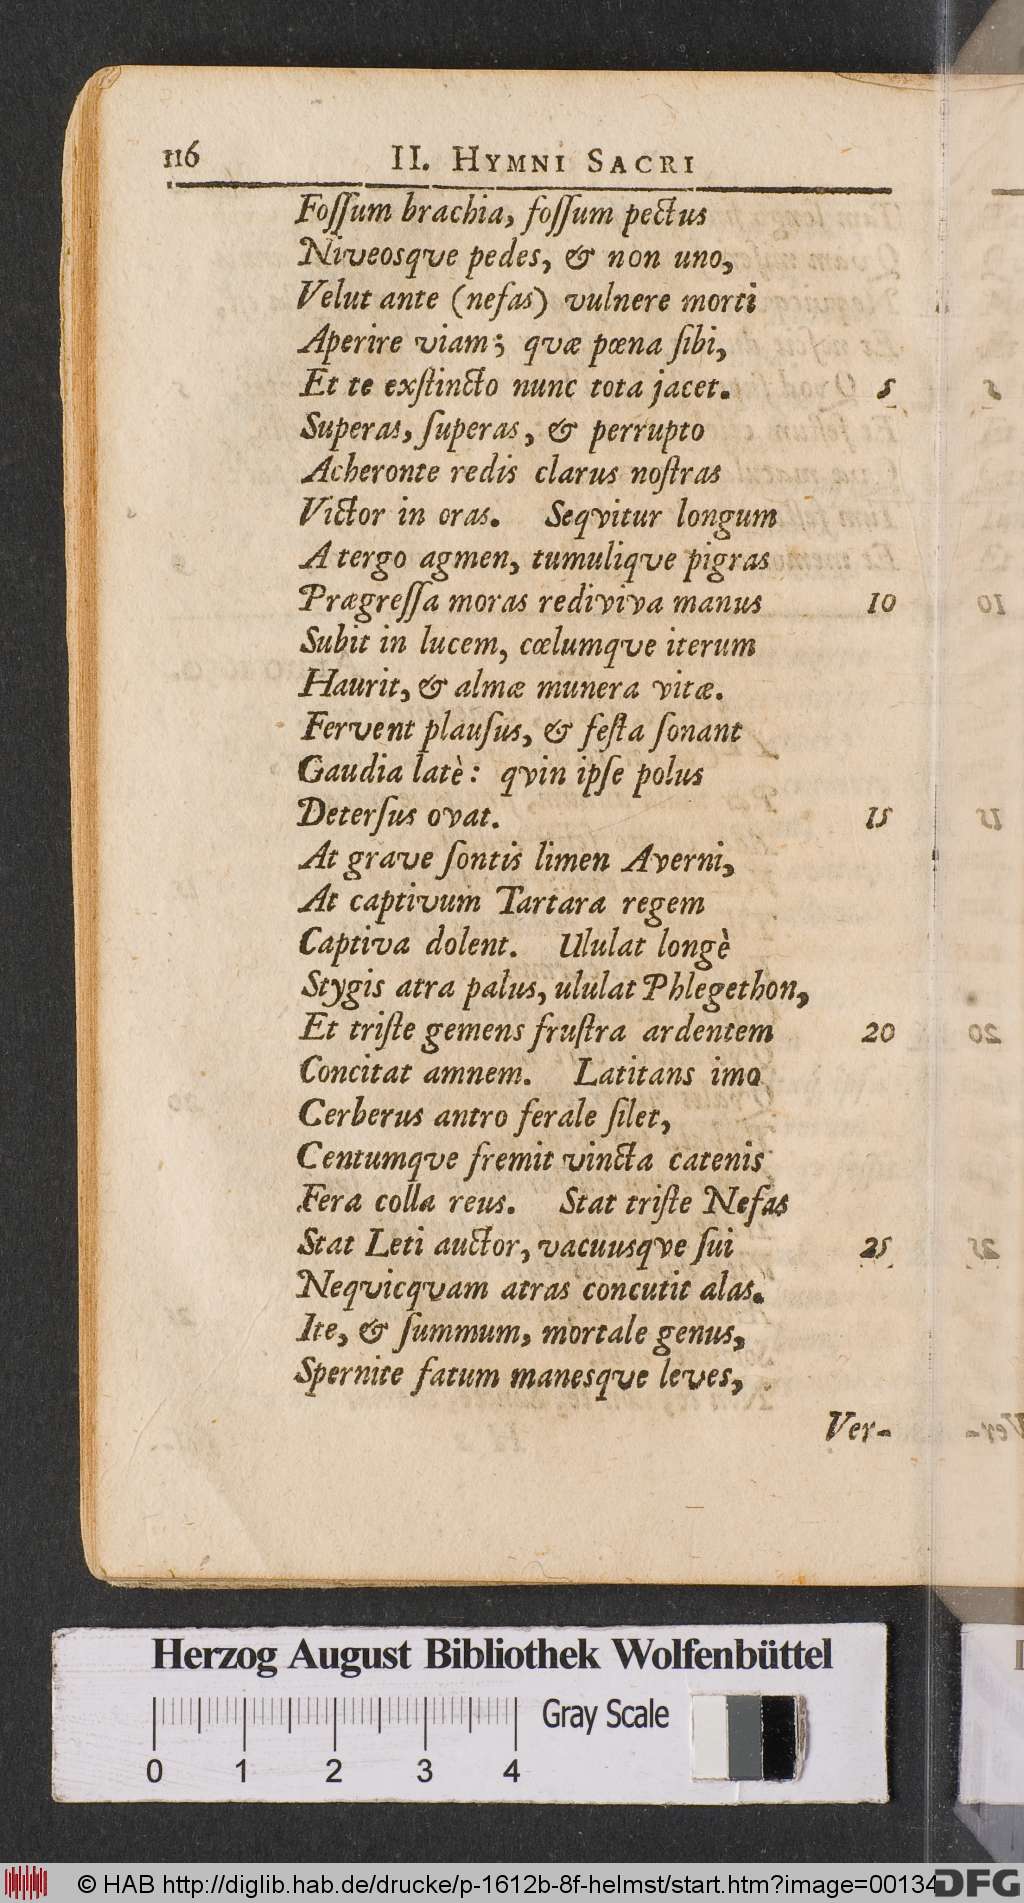 116 II. HYMNI SACRI
Foſſum brachia, foſſum pectus
Niveosqve pedes, & non uno,
Velut ante (nefas) vulnere morti
Aperire viam; qvæ pœna ſibi,
Et te exſtincto nunc tota jacet. 5
Superas, ſuperas, & perrupto
Acheronte redis clarus noſtras
Victor in oras. Seqvitur longum
A tergo agmen, tumuliqve pigras
Prægreſſa moras rediviva manus 10
Subit in lucem, cœlumqve iterum
Haurit, & almæ munera vitæ.
Fervent plauſus, & feſta ſonant
Gaudia latè: qvin ipſe polus
Deterſus ovat. 15
At grave ſontis limen Averni,
At captivum Tartara regem
Captiva dolent. Ululat longè
Stygis atra palus, ululat Phlegethon,
Et triſte gemens fruſtra ardentem 20
Concitat amnem. Latitans imo
Cerberus antro ferale ſilet,
Centumqve fremit vincta catenis
Fera colla reus. Stat triſte Nefas
Stat Leti auctor, vacuusqve ſui 25
Neqvicqvam atras concutit alas.
Ite, & ſummum, mortale genus,
Spernite fatum manesqve leves,
Ver-
Herzog August Bibliothek Wolfenbüttel
Gray Scale
0 1 2 3 4
© HAB http://diglib.hab.de/drucke/p-1612b-8f-helmst/start.htm?image=00134
DFG